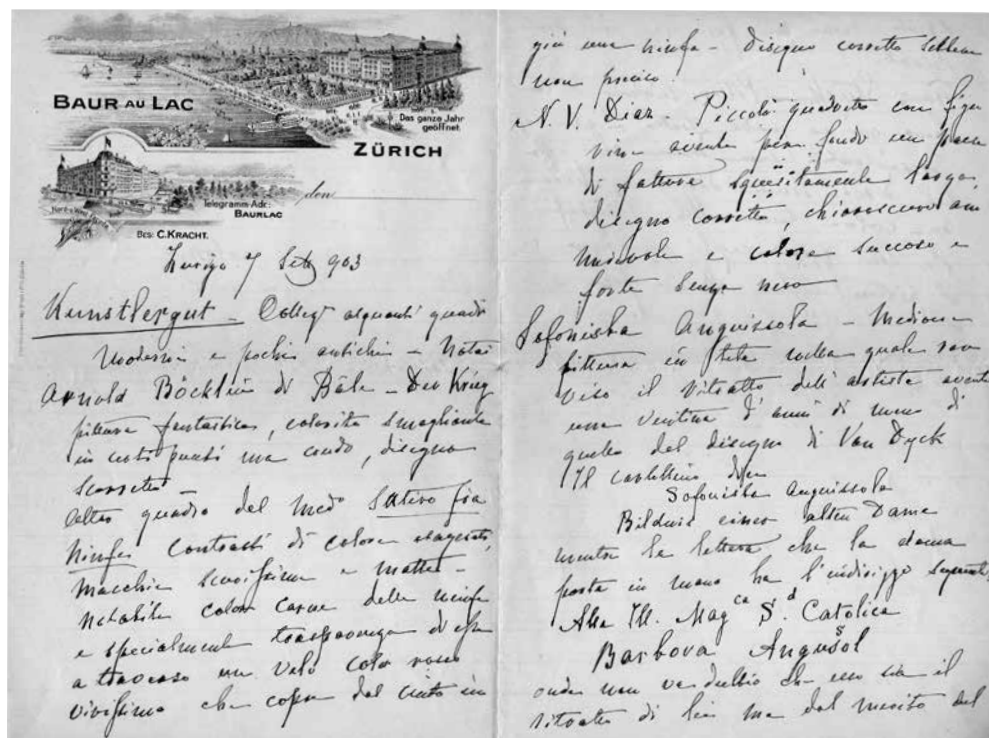 BAUR AU LAC
Das ganze Jahr
geöffnet.
ZÜRICH
Telegramm-Adr:
BAURLAC
den
BES: C. KRACHT.
Zurigo 7 Set 903
Kunstlergut – Collez alquanti quadri
moderni e pochi antichi – Notai
Arnold Böcklin di Bâle – Der Krieg
pittura fantastica, colorito smagliante
in certi punti ma crudo, disegno
scorretto
Altro quadro del med Satiro fra
Ninfe Contrasti di colore esagerati,
macchie scurissime e matte –
Notabile color carne delle ninfe
e specialmente trasparenza di esse
a traverso un velo color rosso
vivissimo che copre dal cinto in
giù una ninfa – disegno corretto sebbene
non preciso.
N. V. Diaz. Piccolo quadretto con figu
rine avente per fondo un paese
di fattura squisitamente larga,
disegno corretto, chiaroscuro am
mirevole e colore succoso e
forte senza nero
Sofonisba Anguissola – Mediocre
pittura in tela nella quale rav
viso il ritratto dell'artista avente
una ventina d'anni di meno di
quello del disegno di Van Dyck
Il cartellino dice
Sofonisba Anguissola
Bildnis einer alten Dame
mentre la lettera che la dama
porta in mano ha l'indirizzo seguente
Alla Ill. Mag.ca S. d Catolica
Barbova Angusol
onde non va dubbio che esso sia il
ritratto di lei ma dal merito del